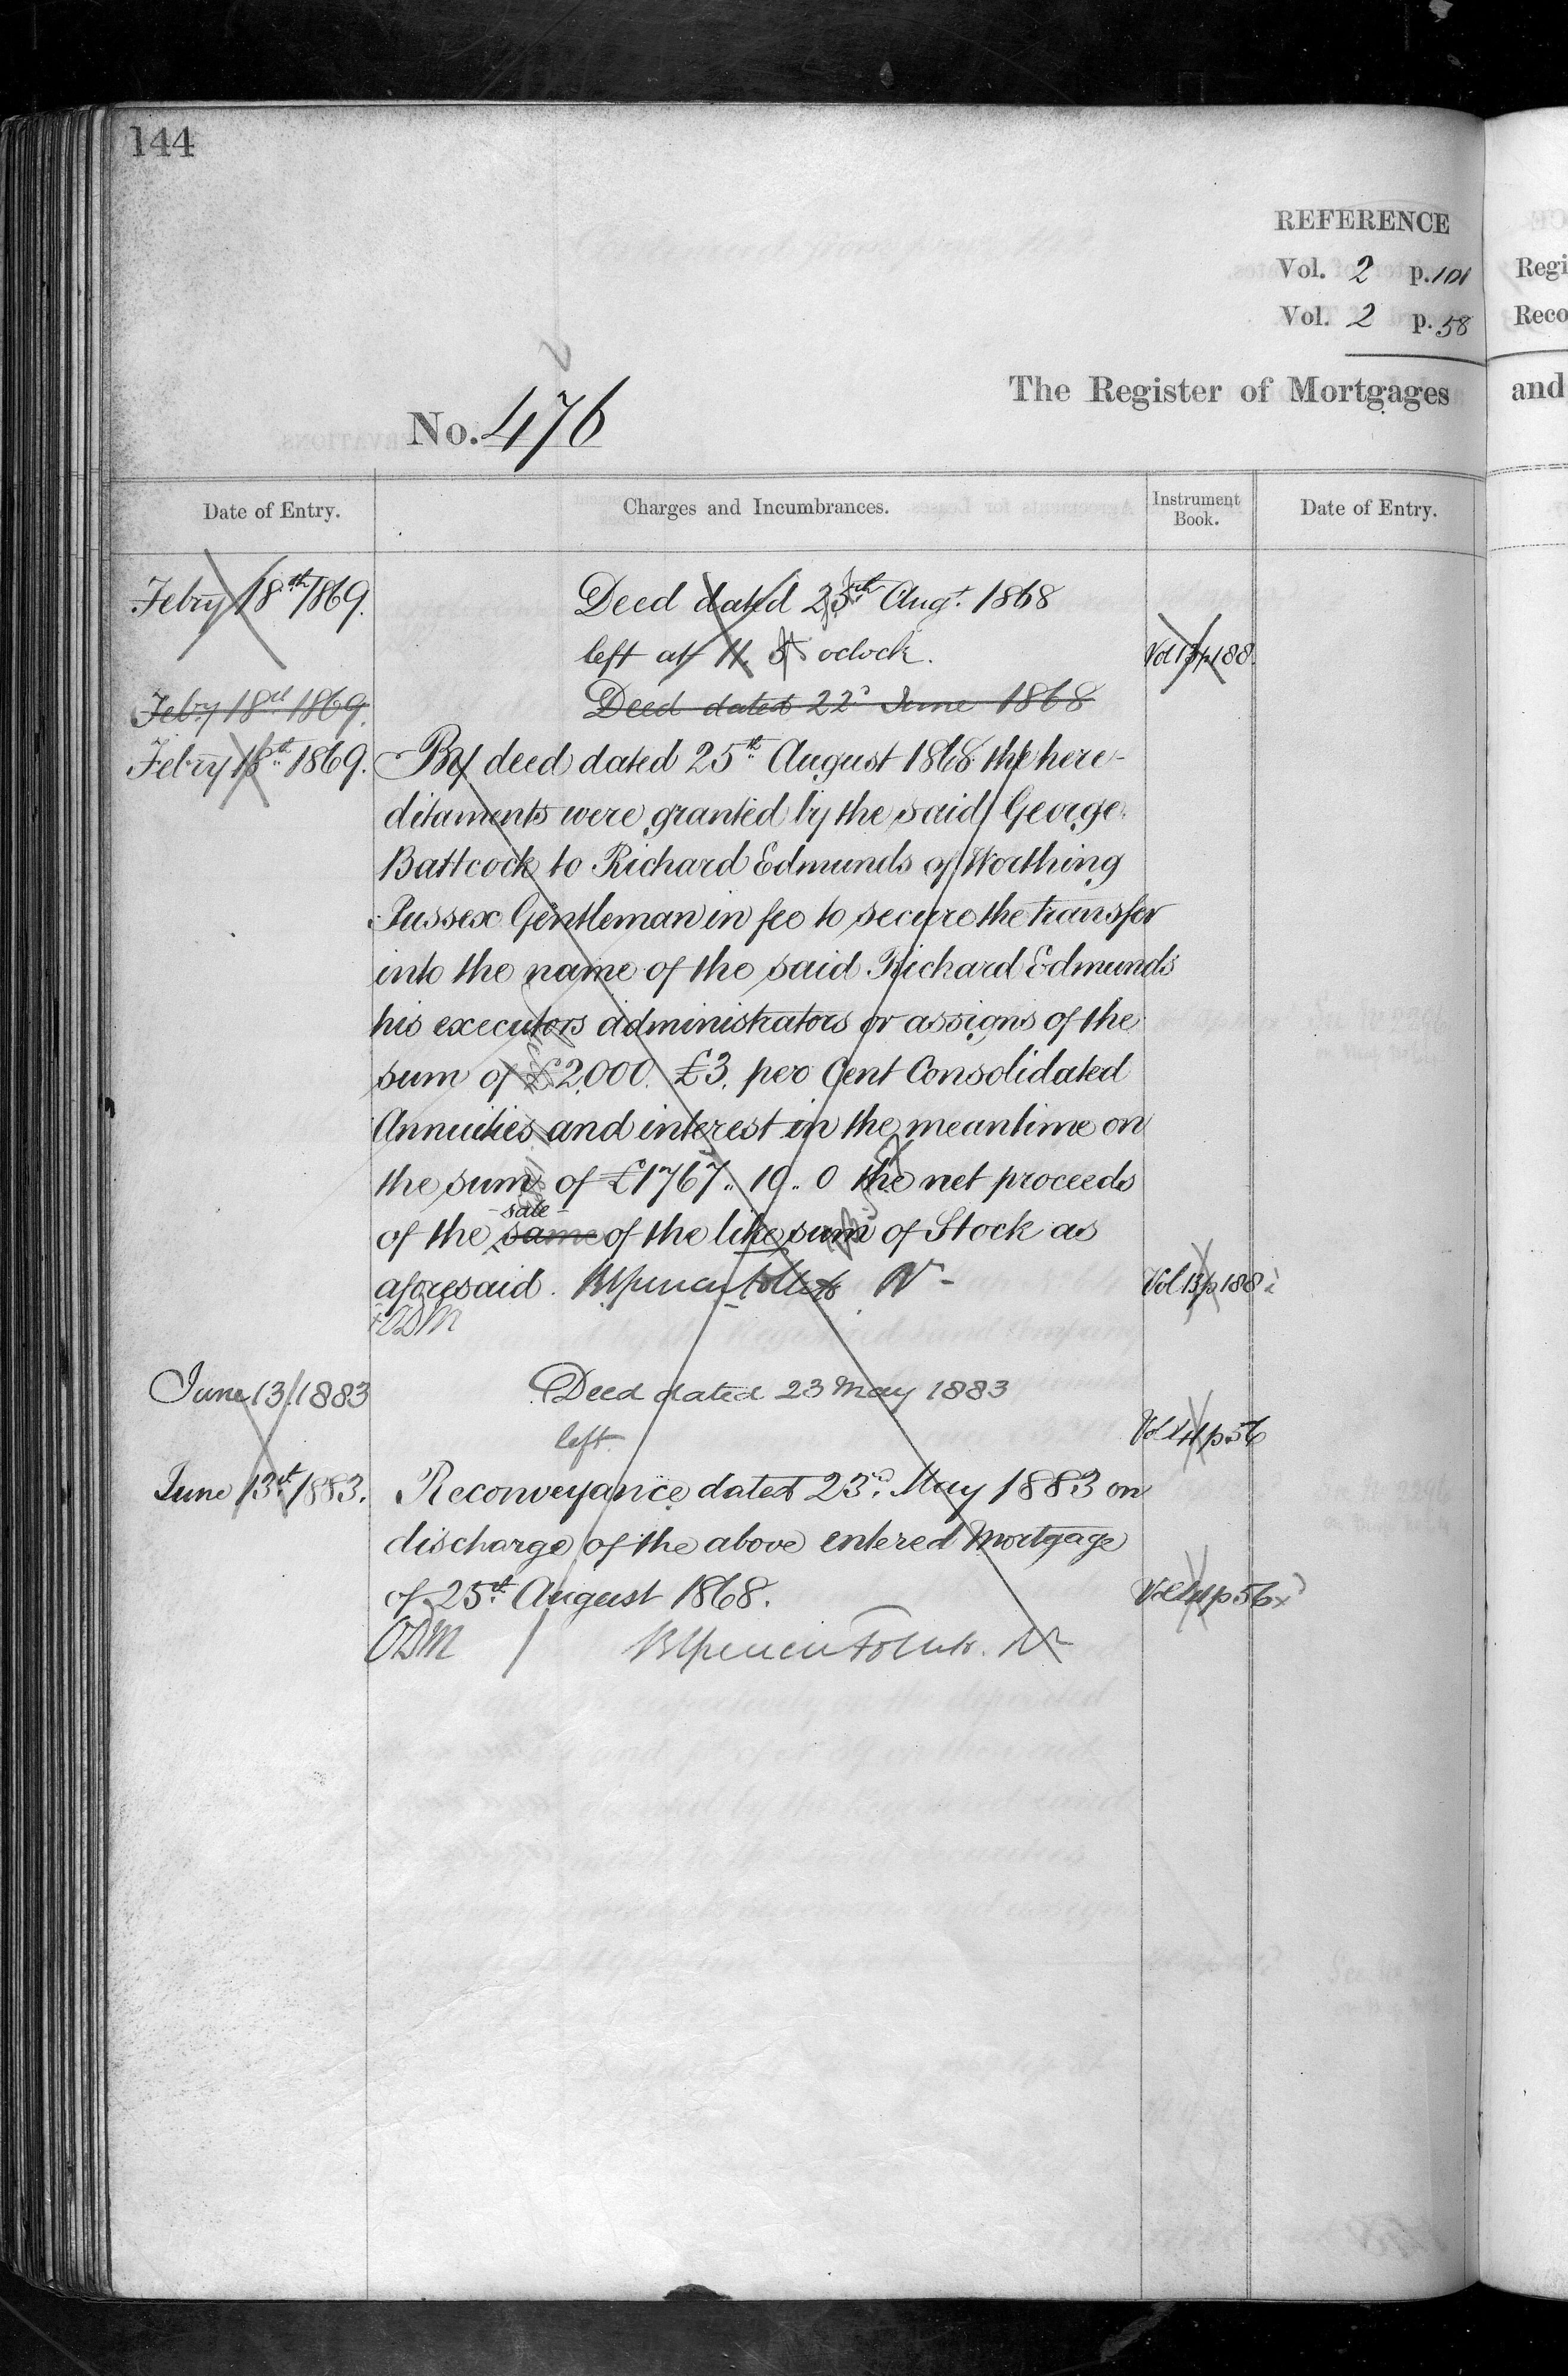 144
REFERENCE
Vol. 2 p. 101
Vol. 2 p. 58
Regi
Reco
The Register of Mortgages
and
No. 476
Date of Entry.
Charges and Incumbrances.
Instrument Book.
Date of Entry.
Febry 18th 1869. Deed dated 25th Augt. 1868
left at 11. 5 oclock. Vol 13 p 188.
Febry 18th 1869. Deed dated 22d June 1868
Febry 18th 1869. By deed dated 25th August 1868 the here-
ditaments were granted by the said George
Battcock to Richard Edmunds of Worthing
Sussex Gentleman in fee to secure the transfer
into the name of the said Richard Edmunds
his executors administrators or assigns of the
sum of £2,000. £3. per Cent Consolidated
Annuities and interest in the meantime on
the sum of £1767. 10. 0 the net proceeds
sale
of the same of the like sum of Stock as
aforesaid. Vol 13 p 188
June 13. 1883 Deed dated 23 May 1883
left Vol 41 p 56
June 13th 1883. Reconveyance dated 23d. May 1883 on
discharge of the above entered Mortgage
of 25th August 1868. Vol 41 p 56